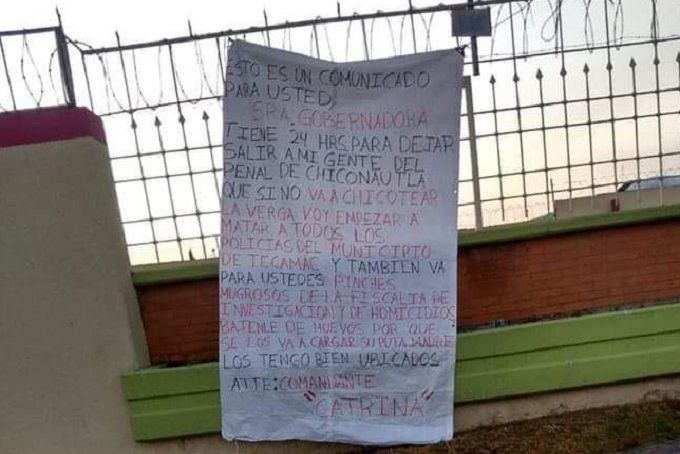 ESTO ES UN COMUNICADO
PARA USTED,
SRA, GOBERNADORA
TIENE 24 HRS, PARA DEJAR
SALIR A MI GENTE DEL
PENAL DE CHICONAUTLA
QUE SI NO VA A CHICOTEAR
LA VERGA VOY EMPEZAR A
MATAR A TODOS LOS
POLICIAS DEL MUNICIPIO
DE TECAMAC Y TAMBIEN VA
PARA USTEDES PINCHES
MUGROSOS DE LA FISCALIA DE
INVESTIGACION Y DE HOMICIDIOS
BATENLE DE HUEVOS POR QUE
SE LOS VA A CARGAR SU PUTA MADRE
LOS TENGO BIEN UBICADOS
ATTE: COMANDANTE
"CATRINA"